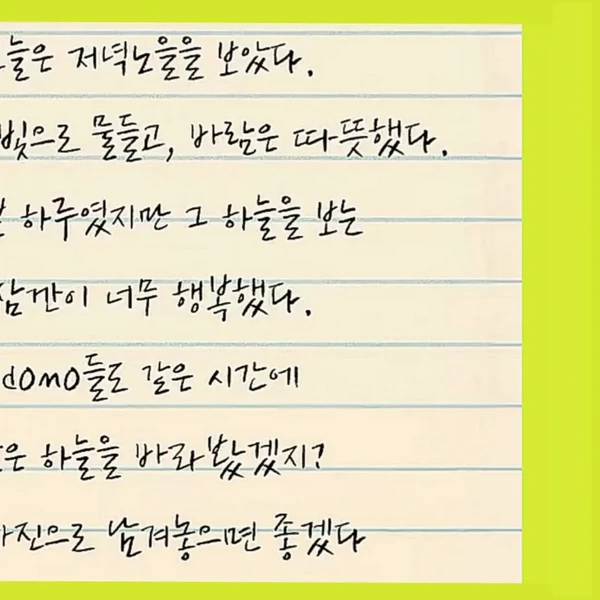 늘은 저녁노을을 보았다.
빛으로 물들고, 바람은 따뜻했다.
하루였지만 그 하늘을 보는
잠깐이 너무 행복했다.
domo들도 같은 시간에
은 하늘을 바라봤겠지?
진으로 남겨놓으면 좋겠다